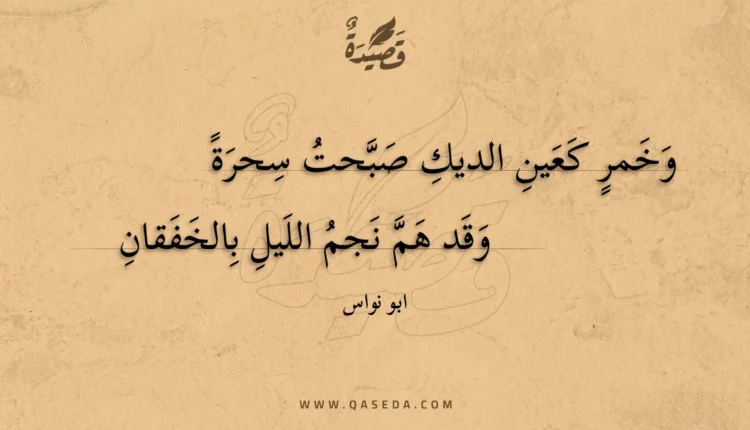 قَصِيدَةٌ
وَخَمرٍ كَعَينِ الديكِ صَبَّحتُ سِحرَةً
وَقَد هَمَّ نَجمُ اللَيلِ بِالخَفَقانِ
ابو نواس
WWW.QASEDA.COM